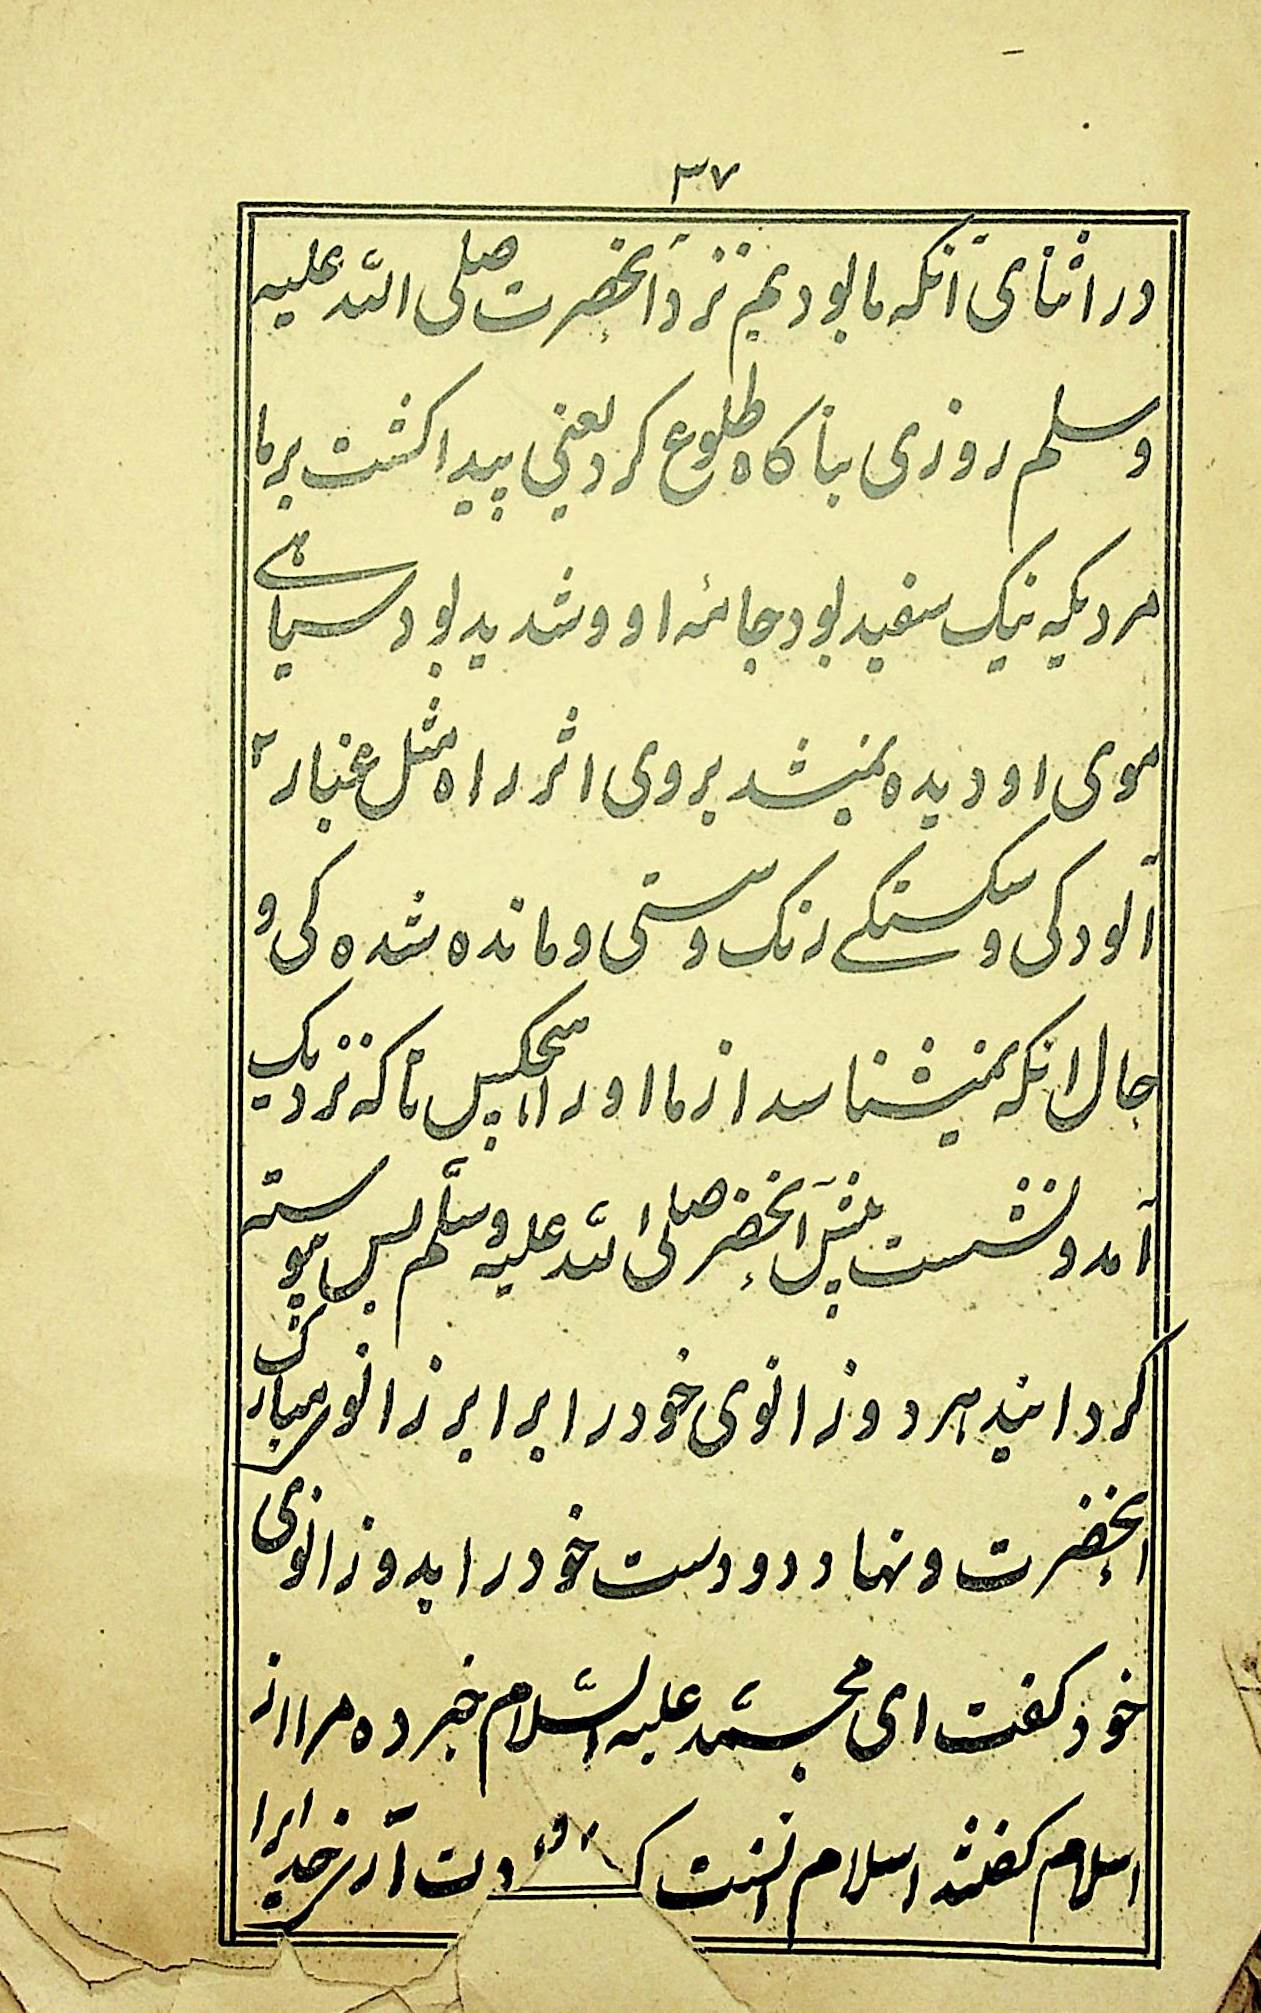 ۳۷
در اثنای آنکه ما بودیم نزد آنحضرت صلی الله علیه
وسلم روزی بناکاه طلوع کرد یعنی پیدا کشت بر ما
مردیکه نیک سفید بود جامه او و شدید بود سیاهے
موی او دیده نمیشد بروی اثر راه مثل غبار
آلودکی و شکستکے رنک و سستی و مانده شده کی و
حال انکه نمیشناسد از ما او را هیچکس تا که نزدیک
آمد و نشست پیش آنحضرت صلی الله علیه وسلم پس پیوسته
کردانید هر دو زانوی خود را برابر زانو مبارک
انحضرت و نهاد دو دست خود را بدو زانوی
خود کفت ای محمد علیه السلام خبر ده مرا از
اسلام کفتند اسلام انست که دت آری خدایرا